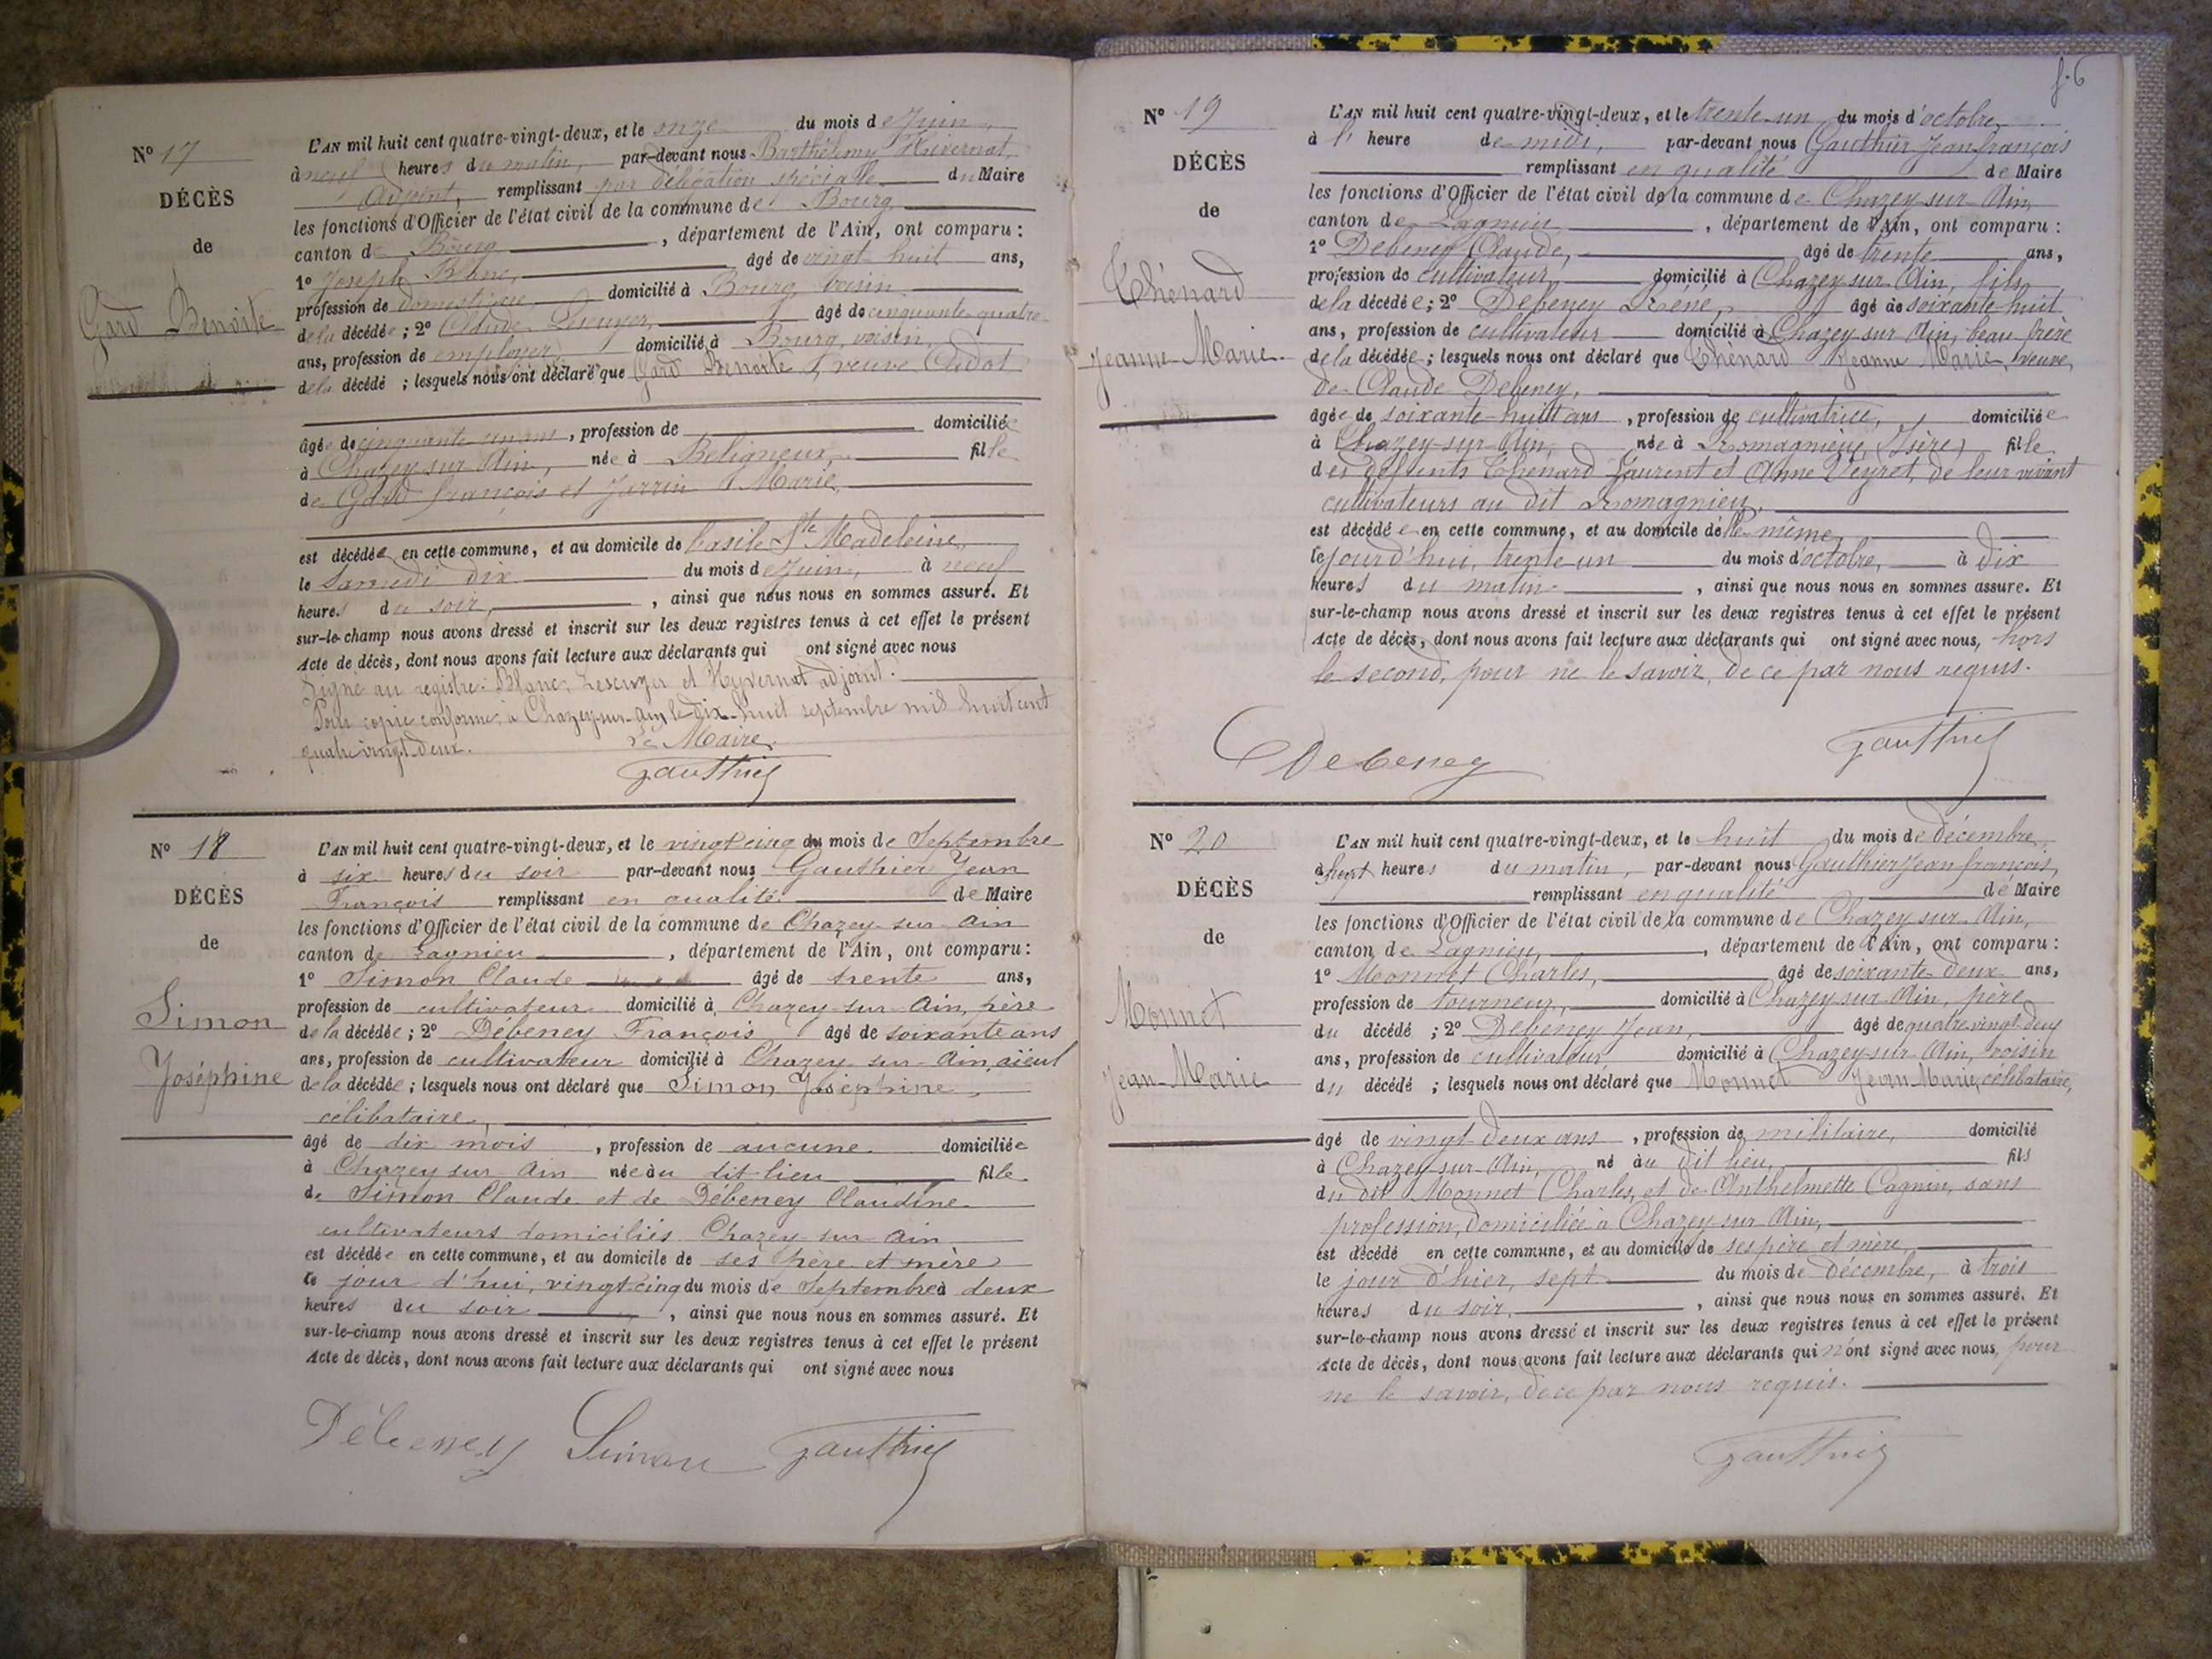 N° 17
DÉCÈS
de
Gard Benoite
L'AN mil huit cent quatre-vingt-deux, et le onze du mois de Juin,
à neuf heures du matin, par-devant nous Barthélemy Huvernat,
Adjoint, remplissant par délégation spéciale du Maire
les fonctions d'Officier de l'état civil de la commune de Bourg
canton de Bourg, département de l'Ain, ont comparu :
1° Joseph Blanc, âgé de vingt huit ans,
profession de domestique domicilié à Bourg voisin
de la décédée ; 2° Claude Lescuyer, âgé de cinquante quatre
ans, profession de employer domicilié à Bourg, voisin,
de la décédé ; lesquels nous ont déclaré que Gard Benoite, veuve Cadot
âgée de cinquante un ans, profession de domiciliée
à Chazey sur Ain, née à Beligneux, fille
de Gard françois et Jarrin Marie,
est décédée en cette commune, et au domicile de l'asile Ste Madeleine,
le Samedi dix du mois de Juin, à neuf
heures du soir, ainsi que nous nous en sommes assuré. Et
sur-le-champ nous avons dressé et inscrit sur les deux registres tenus à cet effet le présent
Acte de décès, dont nous avons fait lecture aux déclarants qui ont signé avec nous
Signé au registre : Blanc, Lescuyer et Huyvernat adjoint.
Pour copie conforme, à Chazey-sur-Ain, le dix-huit septembre mil huit cent
quatre vingt deux. Le Maire,
Gauthier
N° 18
DÉCÈS
de
Simon
Joséphine
L'AN mil huit cent quatre-vingt-deux, et le vingt cinq du mois de Septembre
à six heures du soir par-devant nous Gauthier Jean
François remplissant en qualité de Maire
les fonctions d'Officier de l'état civil de la commune de Chazey sur Ain
canton de Lagnieu, département de l'Ain, ont comparu :
1° Simon Claude âgé de trente ans,
profession de cultivateur domicilié à Chazey-sur-Ain, père
de la décédée ; 2° Débeney François âgé de soixante ans
ans, profession de cultivateur domicilié à Chazey-sur-Ain, aïeul
de la décédée ; lesquels nous ont déclaré que Simon Joséphine,
célibataire,
âgé de dix mois, profession de aucune domiciliée
à Chazey sur Ain née au dit lieu fille
de Simon Claude et de Débeney Claudine
cultivateurs domiciliés Chazey-sur-Ain
est décédée en cette commune, et au domicile de ses père et mère
le jour d'hui, vingt cinq du mois de Septembre à deux
heures du soir, ainsi que nous nous en sommes assuré. Et
sur-le-champ nous avons dressé et inscrit sur les deux registres tenus à cet effet le présent
Acte de décès, dont nous avons fait lecture aux déclarants qui ont signé avec nous
Débeney Simon Gauthier
f. 6
N° 19
DÉCÈS
de
Thénard
Jeanne-Marie
L'AN mil huit cent quatre-vingt-deux, et le trente-un du mois d'octobre,
à l' heure de midi, par-devant nous Gauthier Jean françois
remplissant en qualité de Maire
les fonctions d'Officier de l'état civil de la commune de Chazey-sur-Ain,
canton de Lagnieu, département de l'Ain, ont comparu :
1° Debeney Claude, âgé de trente ans,
profession de cultivateur, domicilié à Chazey sur Ain, fils
de la décédée ; 2° Debeney René, âgé de soixante-huit
ans, profession de cultivateur domicilié à Chazey sur Ain, beau frère
de la décédée ; lesquels nous ont déclaré que Thènard Jeanne Marie, veuve,
de Claude Debeney,
âgée de soixante-huit ans, profession de cultivatrice, domiciliée
à Chazey-sur-Ain, née à Romagnieu, (Isère) fille
des deffunts Thenard Laurent et Anne Veyret, de leur vivant
cultivateurs au dit Romagnieu,
est décédée en cette commune, et au domicile d'elle-même,
ce jourd'hui, trente un du mois d'octobre, à dix
heures du matin, ainsi que nous nous en sommes assuré. Et
sur-le-champ nous avons dressé et inscrit sur les deux registres tenus à cet effet le présent
Acte de décès, dont nous avons fait lecture aux déclarants qui ont signé avec nous, hors
le second, pour ne le savoir, de ce par nous requis.
Debeney Gauthier
N° 20
DÉCÈS
de
Monnet
Jean-Marie
L'AN mil huit cent quatre-vingt-deux, et le huit du mois de décembre,
à sept heures du matin, par-devant nous Gauthier Jean françois,
remplissant en qualité de Maire
les fonctions d'Officier de l'état civil de la commune de Chazey-sur-Ain,
canton de Lagnieu, département de l'Ain, ont comparu :
1° Monnet Charles, âgé de soixante-deux ans,
profession de tourneur, domicilié à Chazey sur Ain, père
du décédé ; 2° Debeney Jean, âgé de quatre vingt deux
ans, profession de cultivateur domicilié à Chazey-sur-Ain, voisin
du décédé ; lesquels nous ont déclaré que Monnet Jean Marie, célibataire,
âgé de vingt-deux ans, profession de militaire, domicilié
à Chazey-sur-Ain, né au dit lieu, fils
du dit Monnet Charles, et de Anthelmette Cagnin, sans
profession, domiciliée à Chazey sur Ain,
est décédé en cette commune, et au domicile de ses père et mère,
le jour d'hier, sept du mois de décembre, à trois
heures du soir, ainsi que nous nous en sommes assuré. Et
sur-le-champ nous avons dressé et inscrit sur les deux registres tenus à cet effet le présent
Acte de décès, dont nous avons fait lecture aux déclarants qui n'ont signé avec nous, pour
ne le savoir, de ce par nous requis.
Gauthier